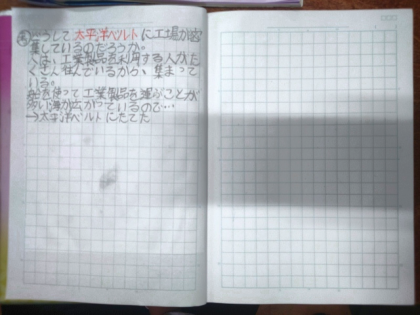 どうして太平洋ベルトに工場が密
集しているのだろうか。
は、工業製品を利用する人がた
くさん住んでいるから、集まって
いる。
船を使って工業製品を運ぶことが
多い海が広がっているので…
→太平洋ベルトにたてた